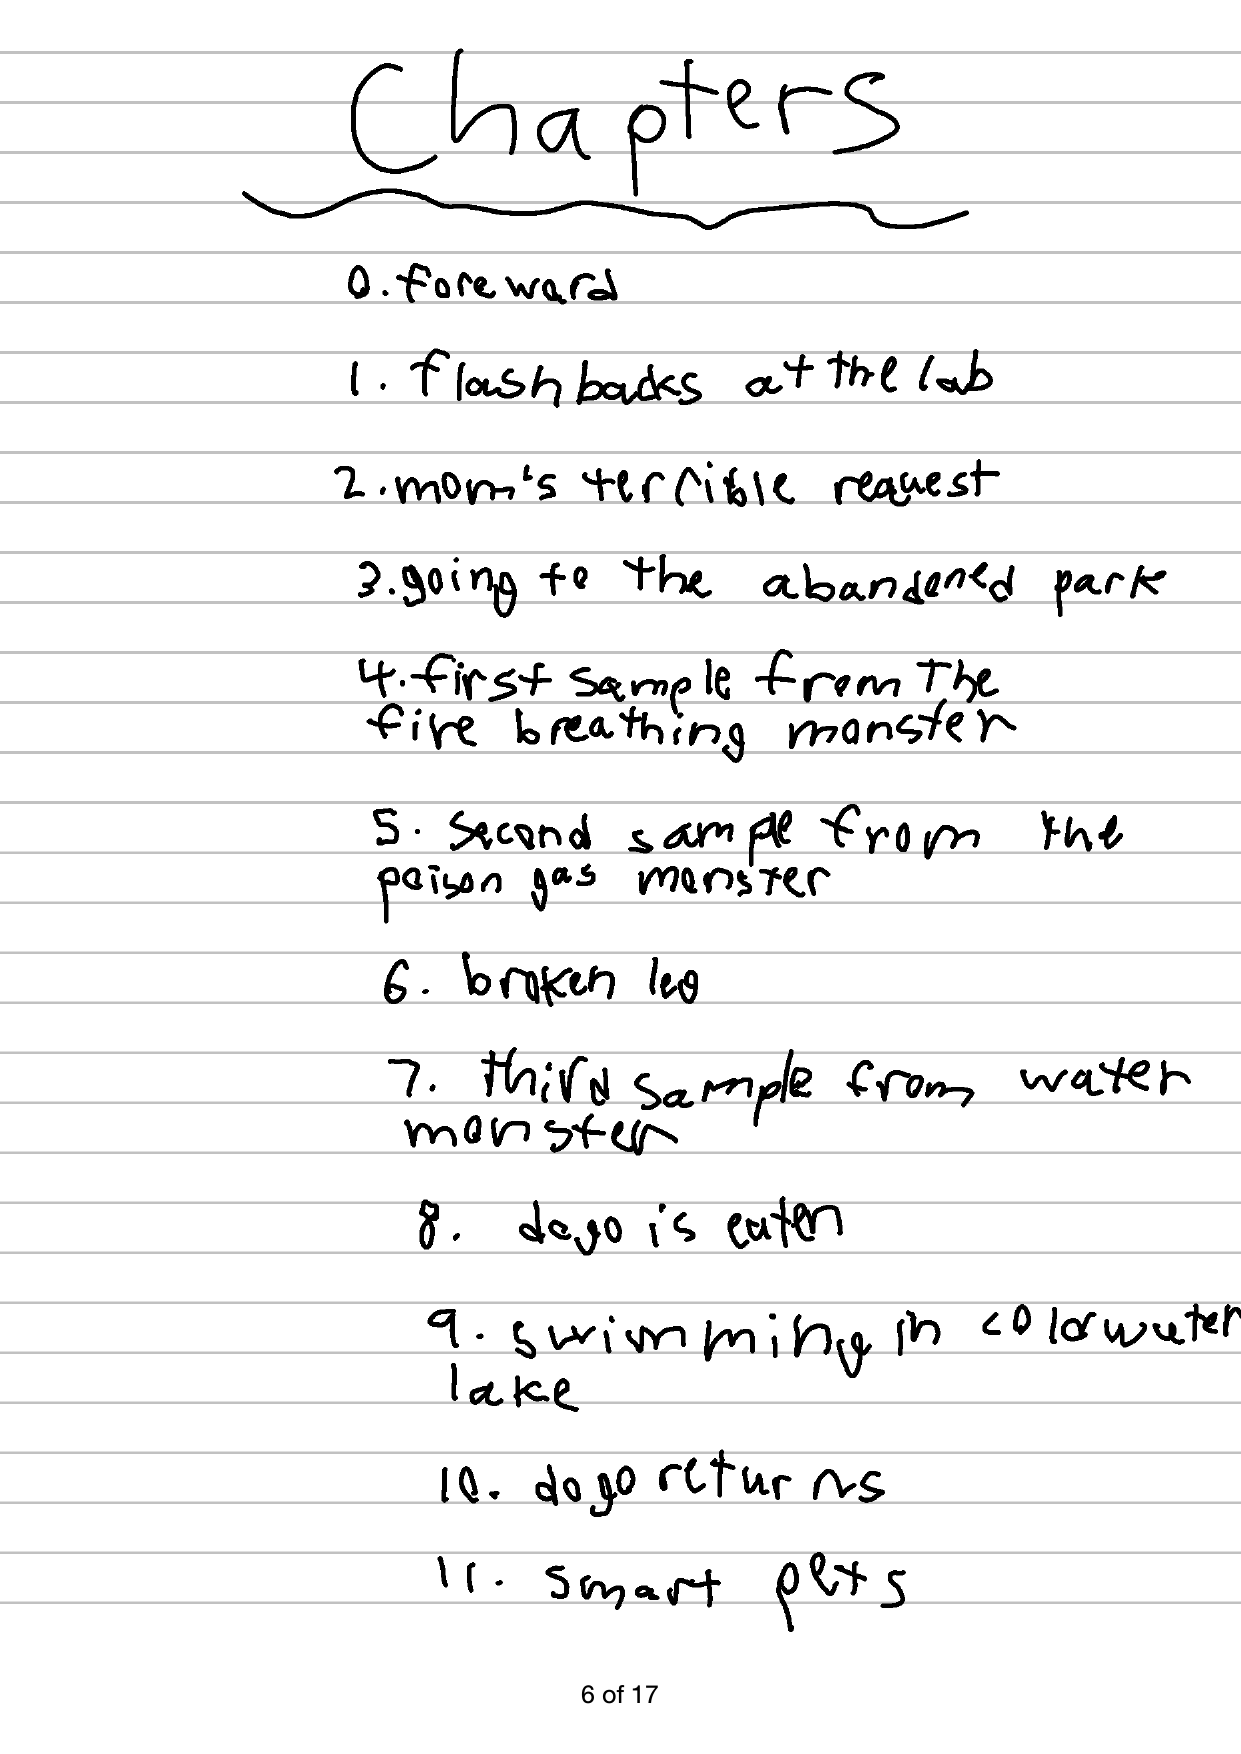 Chapters
0. foreward
1. flashbacks at the lab
2. mom's terrible request
3. going to the abandoned park
4. first sample from the
fire breathing monster
5. second sample from the
poison gas monster
6. broken leg
7. third sample from water
monster
8. dogo is eaten
9. swimming in colorwater
lake
10. dogo returns
11. smart pets
6 of 17